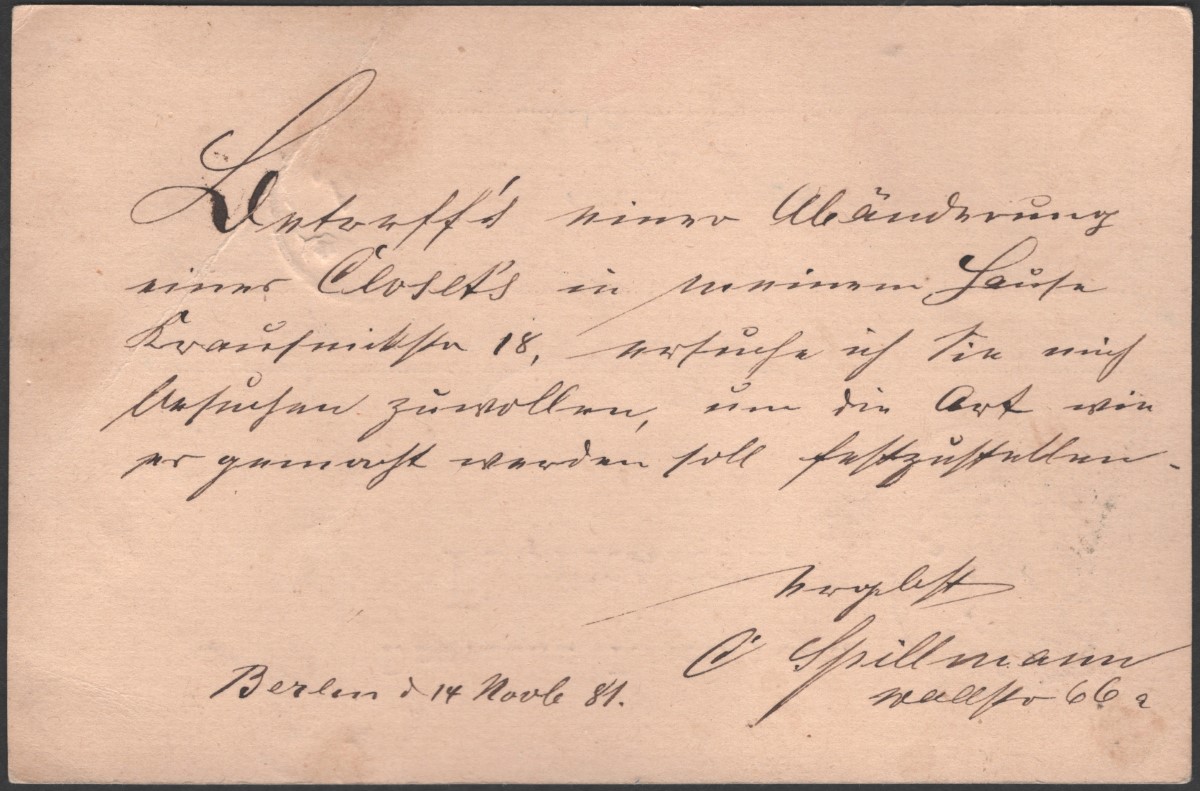 Betreffs einer Abänderung
eines Closets in meinem Hause
Krausnickstr 18, ersuche ich Sie mich
besuchen zuwollen, um die Art wie
er gemacht werden soll festzustellen.
ergebst
C Spillmann
Wallstr 66a
Berlin d 14 Novb 81.